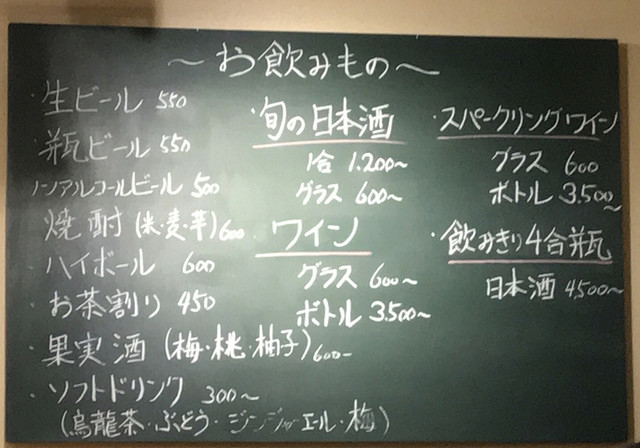 ～お飲みもの～
・生ビール 550
・瓶ビール 550
・ノンアルコールビール 500
・焼酎(米・麦・芋)600
・ハイボール 600
・お茶割り 450
・果実酒(梅・桃・柚子)600～
・ソフトドリンク 300～
(烏龍茶・ぶどう・ジンジャーエール・梅)
・旬の日本酒
1合 1.200～
グラス 600～
・ワイン
グラス 600～
ボトル 3.500～
・スパークリングワイン
グラス 600
ボトル 3.500～
・飲みきり4合瓶
日本酒 4,500～